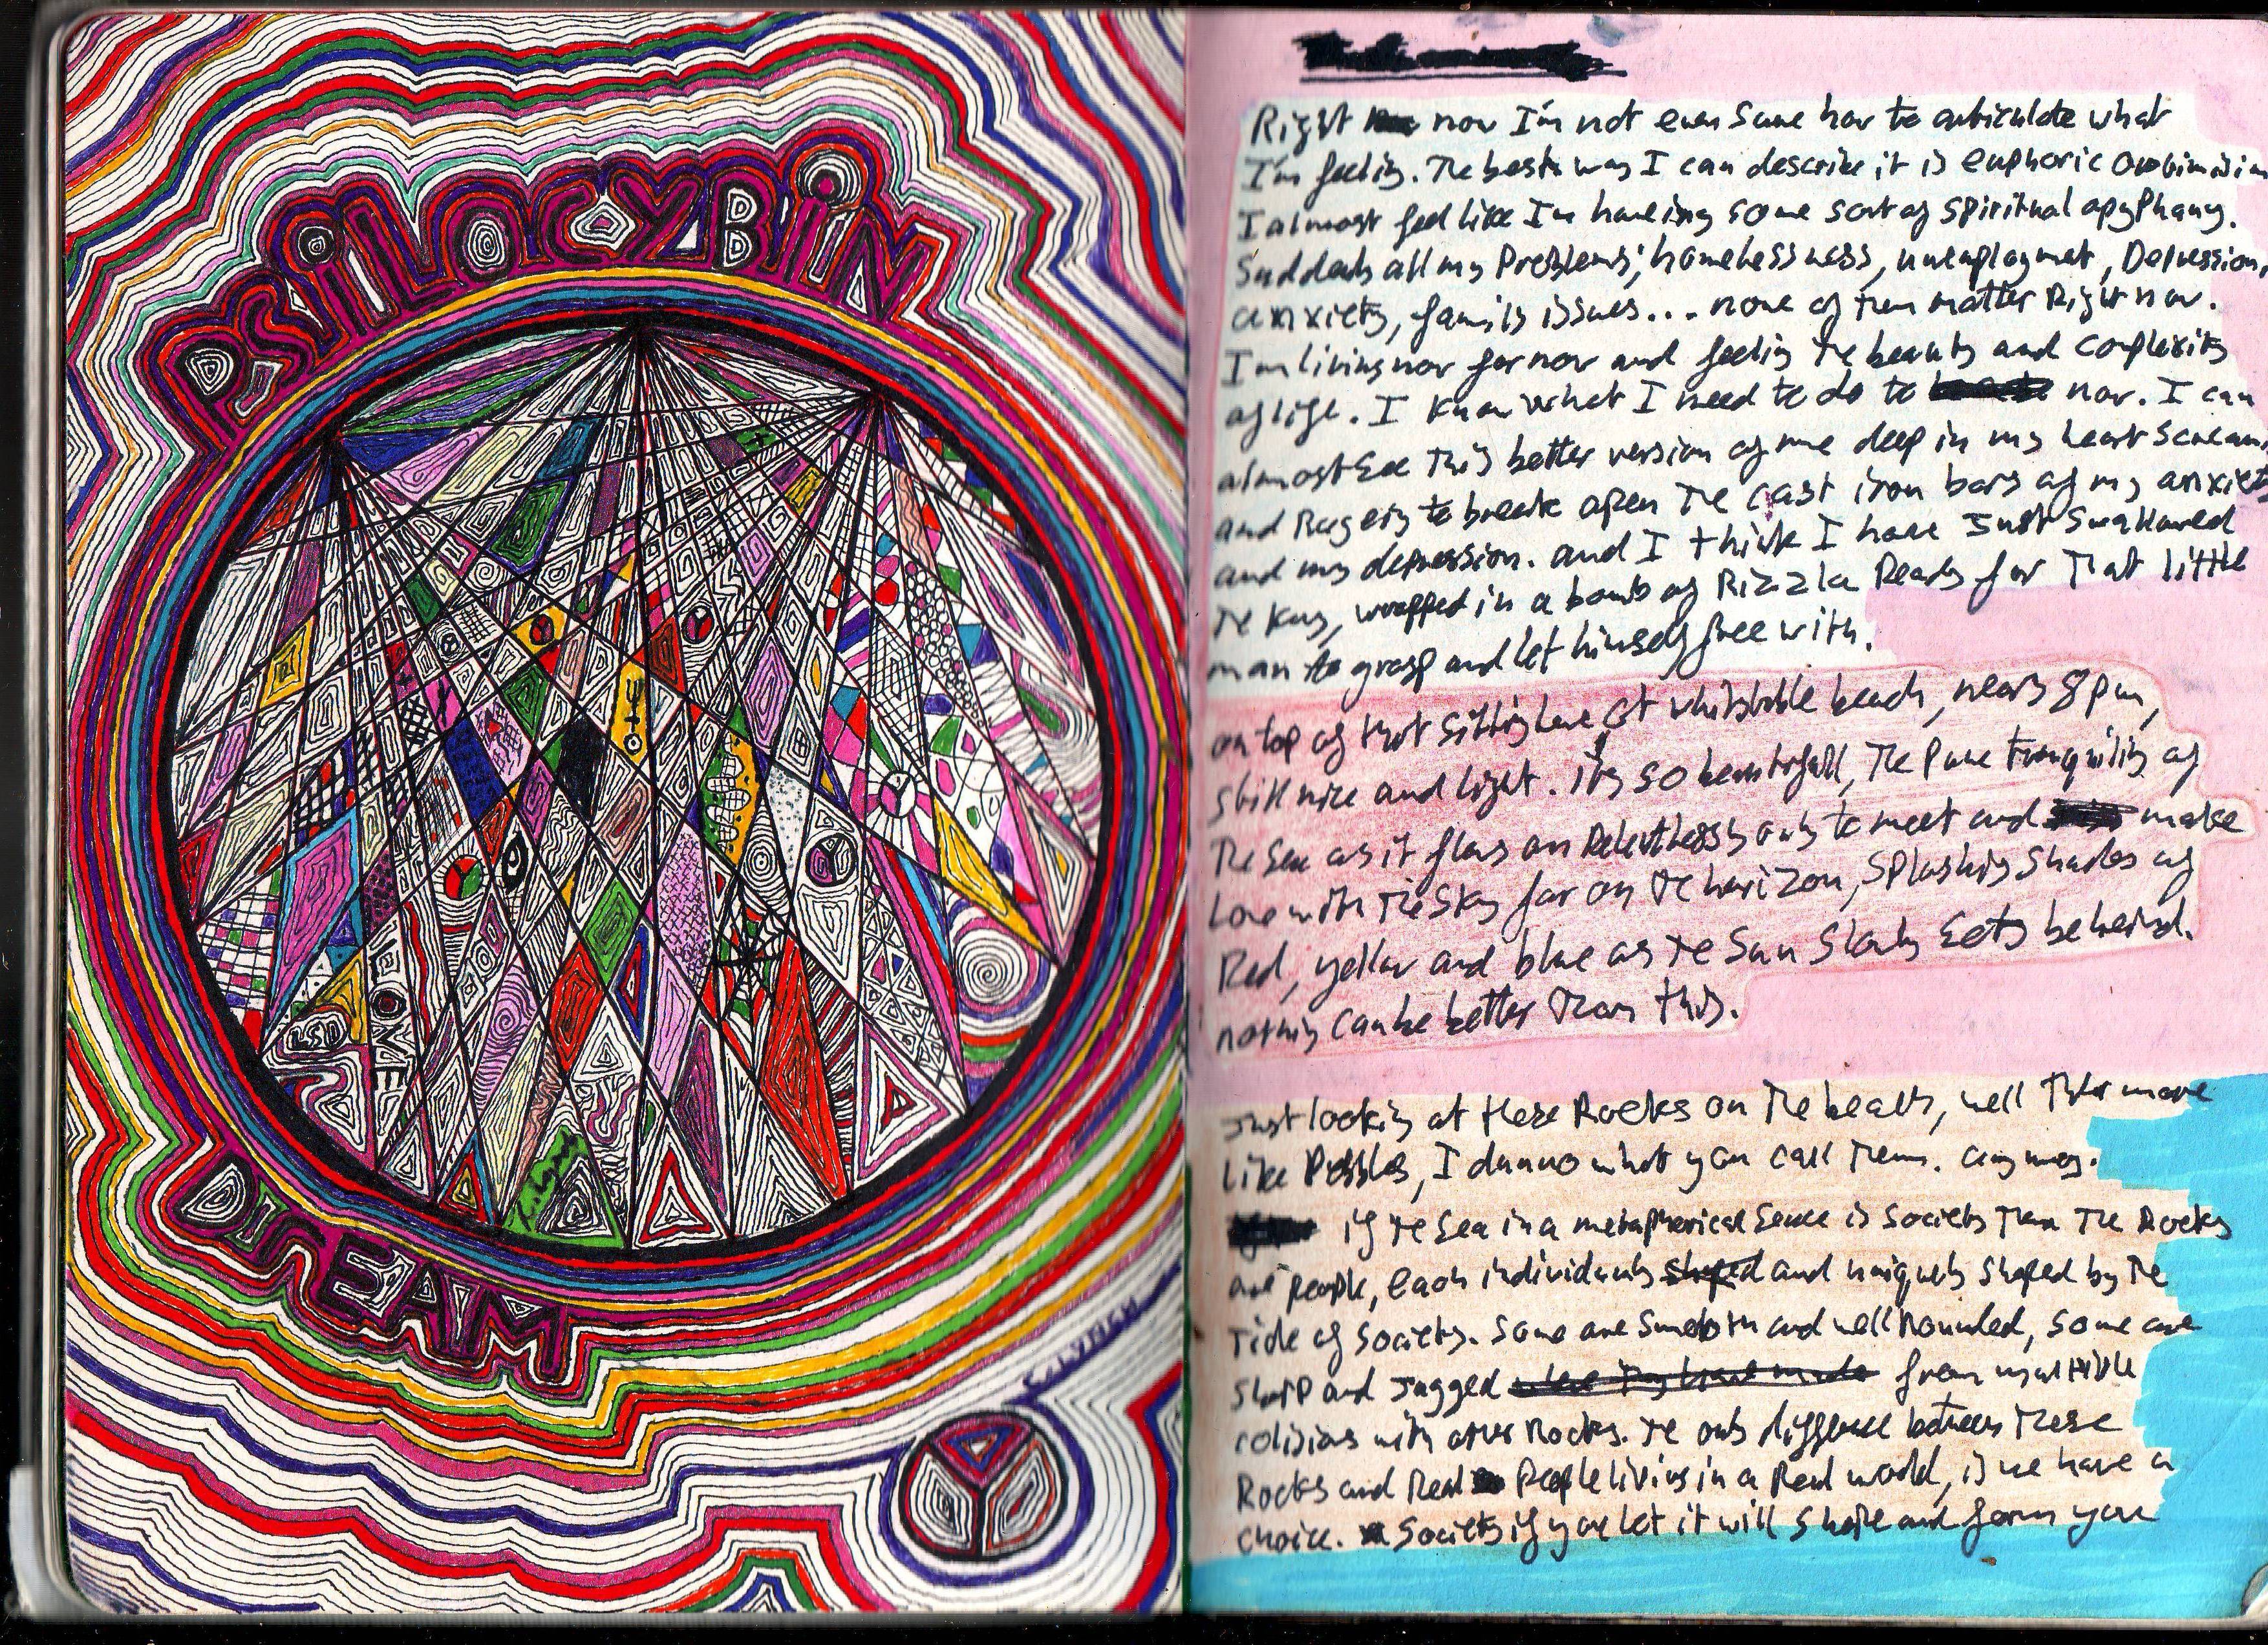 PSILOCYBIN
LSD
LOVE
DREAM
C.LYNCH
Right now I'm not even sure how to articulate what
I'm feeling. The best way I can describe it is euphoric
I almost feel like I'm haveing some sort of spiritual apyphany.
Suddenly all my Problems; homelessness, unemployment, Depression,
anxiety, family issues... none of them matter Right now.
I'm living now for now and feeling the beauty and complexity
of life. I know what I need to do to now. I can
almost see this better version of me deep in my heart scream
and Rageing to break open the cast iron bars of my anxiety
and my depression. and I think I have Just swallowed
the key, wrapped in a bomb of Rizzla Ready for that little
man to grasp and let himself free with.
on top of that sitting here at whitstable beach, nearly 8pm,
still nice and light. it's so beautifull, the pure tranquility of
the sea as it flows on Relentlessly only to meet and make
Love with the sky far on the horizon, splashing shades of
Red, yellow and blue as the sun slowly sets beheind.
nothing can be better than this.
Just looking at these Rocks on the beach, well more
like Pebbles, I dunno what you call them. anyway.
if the sea in a metaphorical sence is society then the Rocks
are people, each individualy shaped and uniquely shaped by the
Tide of society. Some are smooth and well Rounded, some are
sharp and Jagged where they have made from multible
colisions with other Rocks. the only differece between these
Rocks and Real People living in a Real world, is we have a
choice. Society if you let it will shape and form you